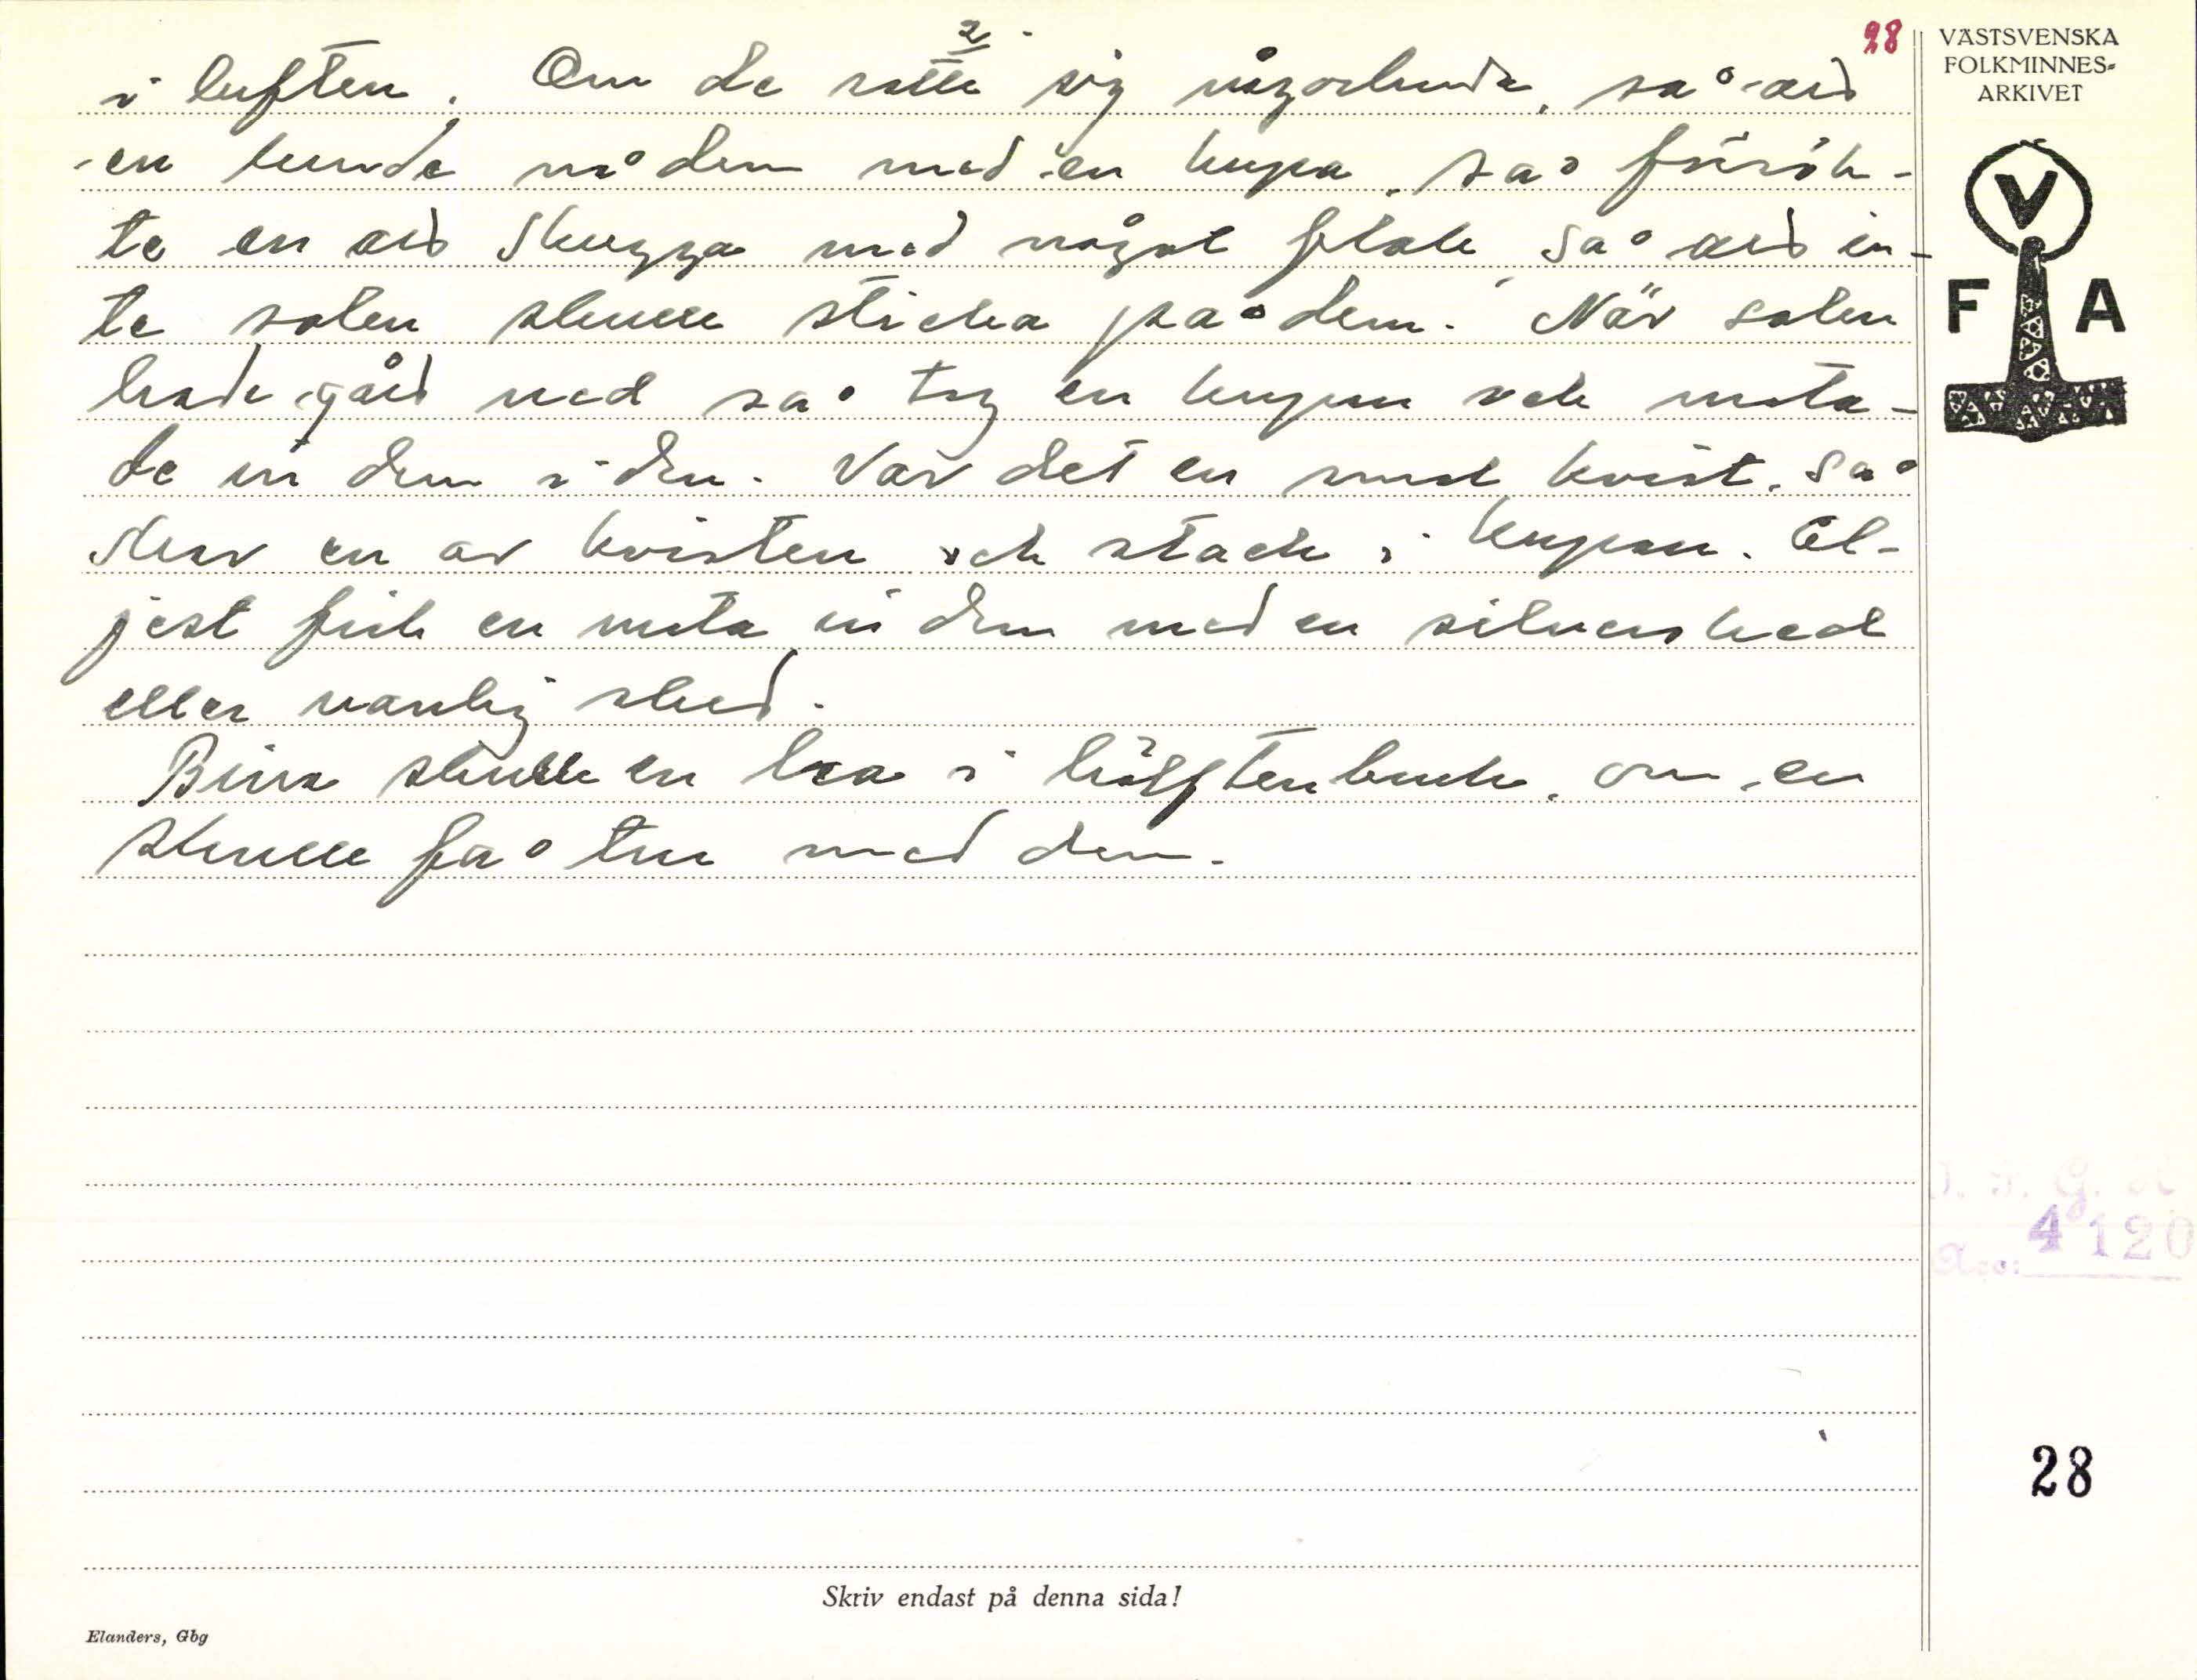 2.
28
i luften. Om de satte sig någorlunda, så att
en kunde nå dem med en kupa, så försök-
te en att skugga med något plak, så att in-
te solen skulle sticka på dem. När solen
hade gått ned så tog en kupan och mota-
de in dem i den. Var det en smal kvist, så
skar en av kvisten och stack i kupan. El-
jest fick en mota in dem med en silversked
eller vanlig sked.
Bina skulle en ha i häggtenbuck, om en
skulle få tur med dem.
VÄSTSVENSKA
FOLKMINNES-
ARKIVET
V
F A
4120
Acc:
28
Skriv endast på denna sida!
Elanders, Gbg